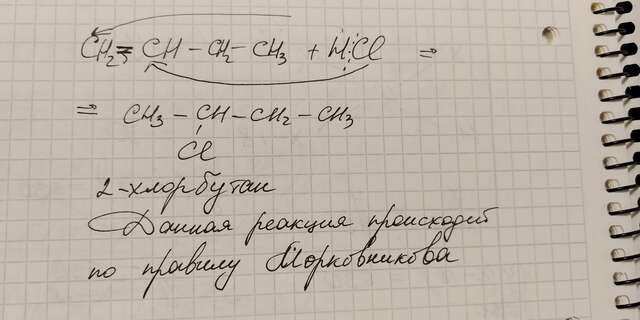 CH₂=CH-CH₂-CH₃ + H:Cl ⇒
⇒ CH₃-CH-CH₂-CH₃
Cl
2-хлорбутан
Данная реакция происходит
по правилу Морковникова